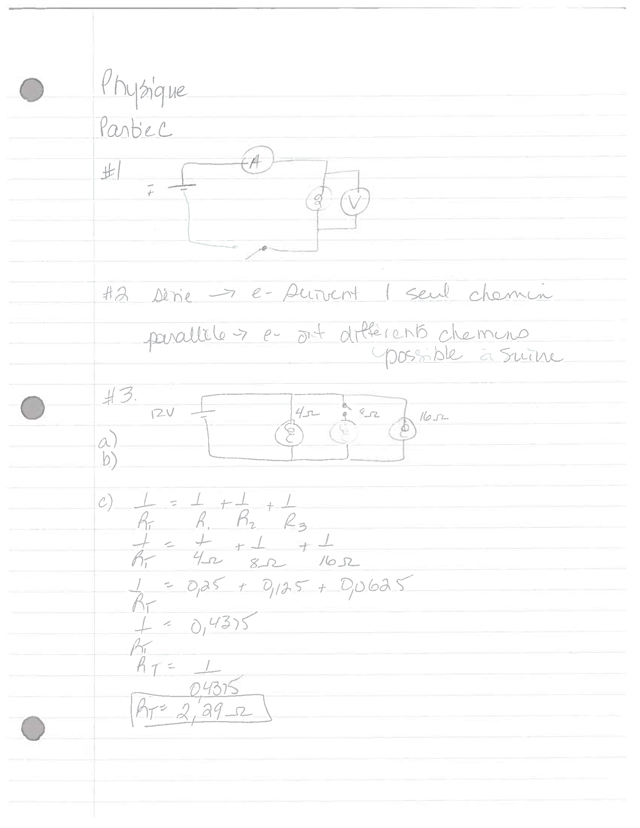 Physique
Partie C
#1
A
V
#2 série → e- suivent 1 seul chemin
parallèle → e- ont différents chemins
possible à suivre
#3.
12V
4Ω
8Ω
16Ω
a)
b)
c) 1/RT = 1/R1 + 1/R2 + 1/R3
1/RT = 1/4Ω + 1/8Ω + 1/16Ω
1/RT = 0,25 + 0,125 + 0,0625
1/RT = 0,4375
RT = 1/0,4375
RT = 2,29 Ω